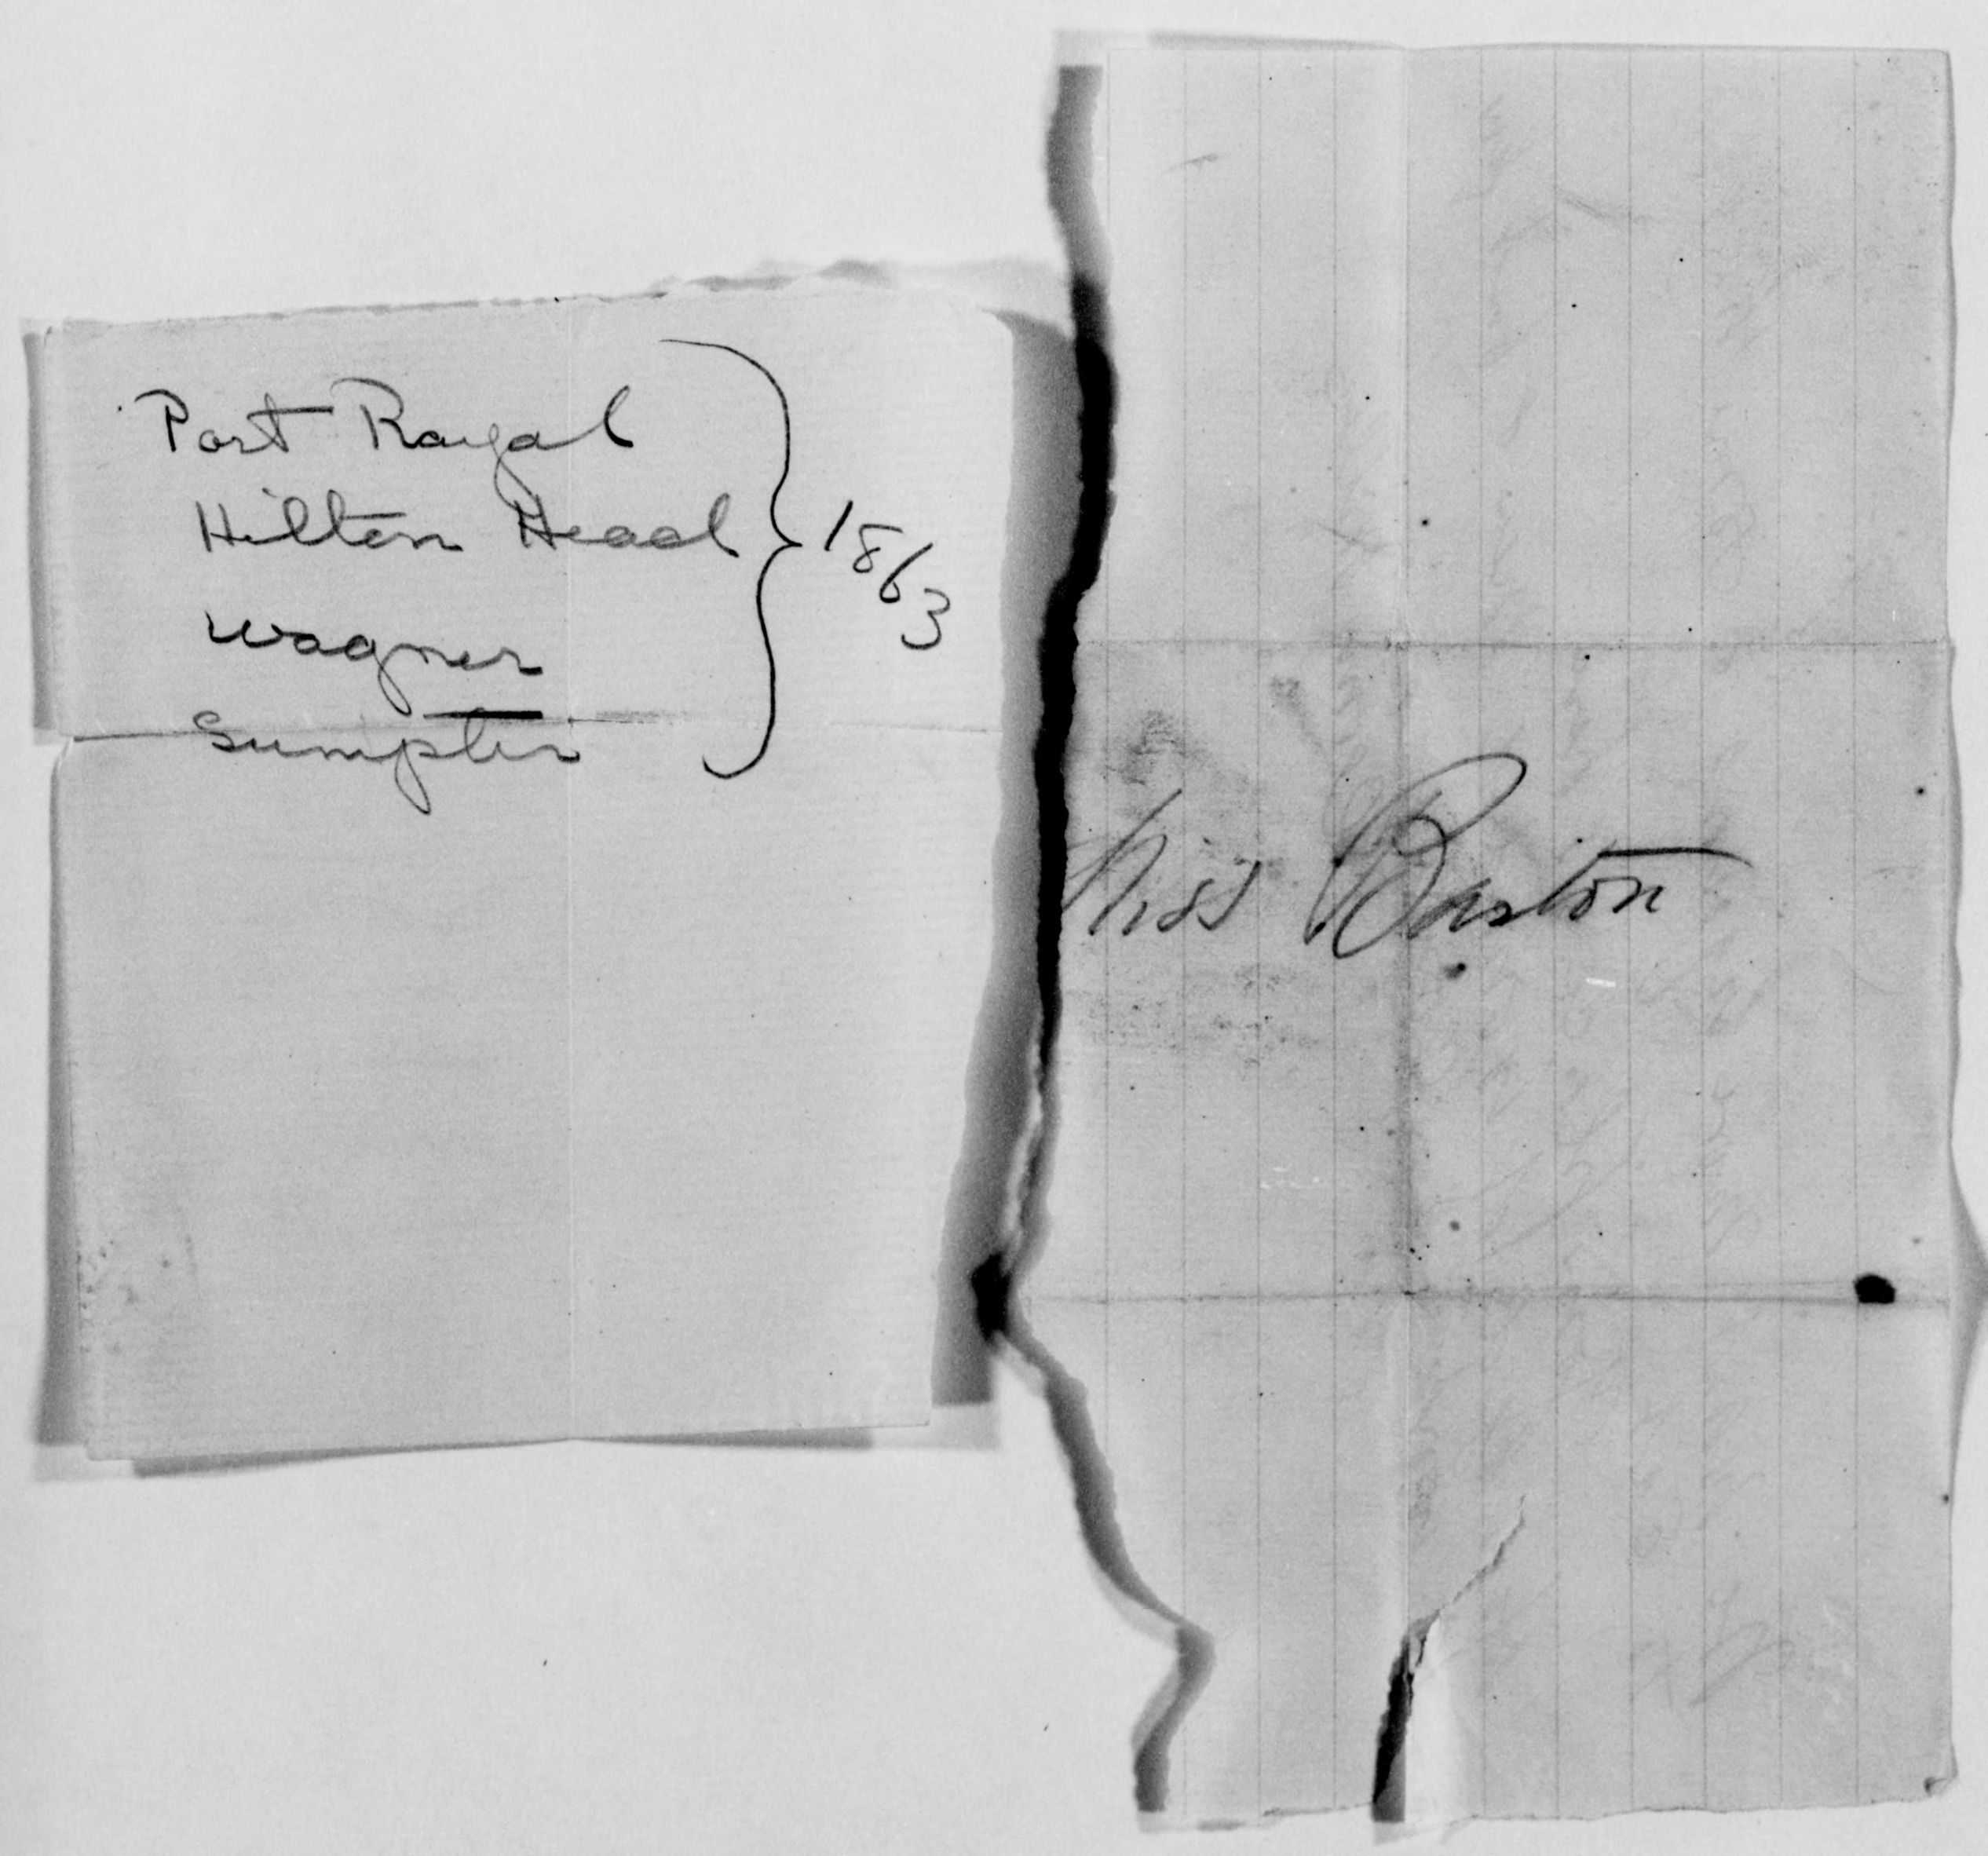 Port Royal
Hilton Head
Wagner
Sumpter
1863
Miss Barton